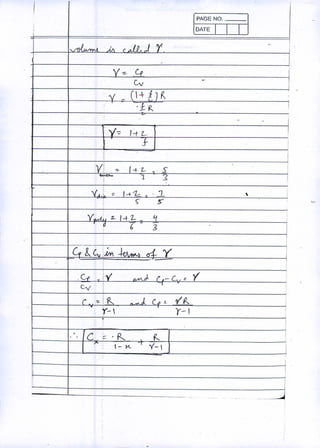 PAGE NO.
DATE
volume is called γ
γ = Cp/Cv
γ = (1 + f/2)R / f/2 R
γ = 1 + 2/f
γmono = 1 + 2/3 = 5/3
γdia = 1 + 2/5 = 7/5
γpoly = 1 + 2/6 = 4/3
Cp & Cv in terms of γ
Cp/Cv = γ and Cp - Cv = γ
Cv = R/γ-1 and Cp = γR/γ-1
∴ Cn = R/1-n + R/γ-1